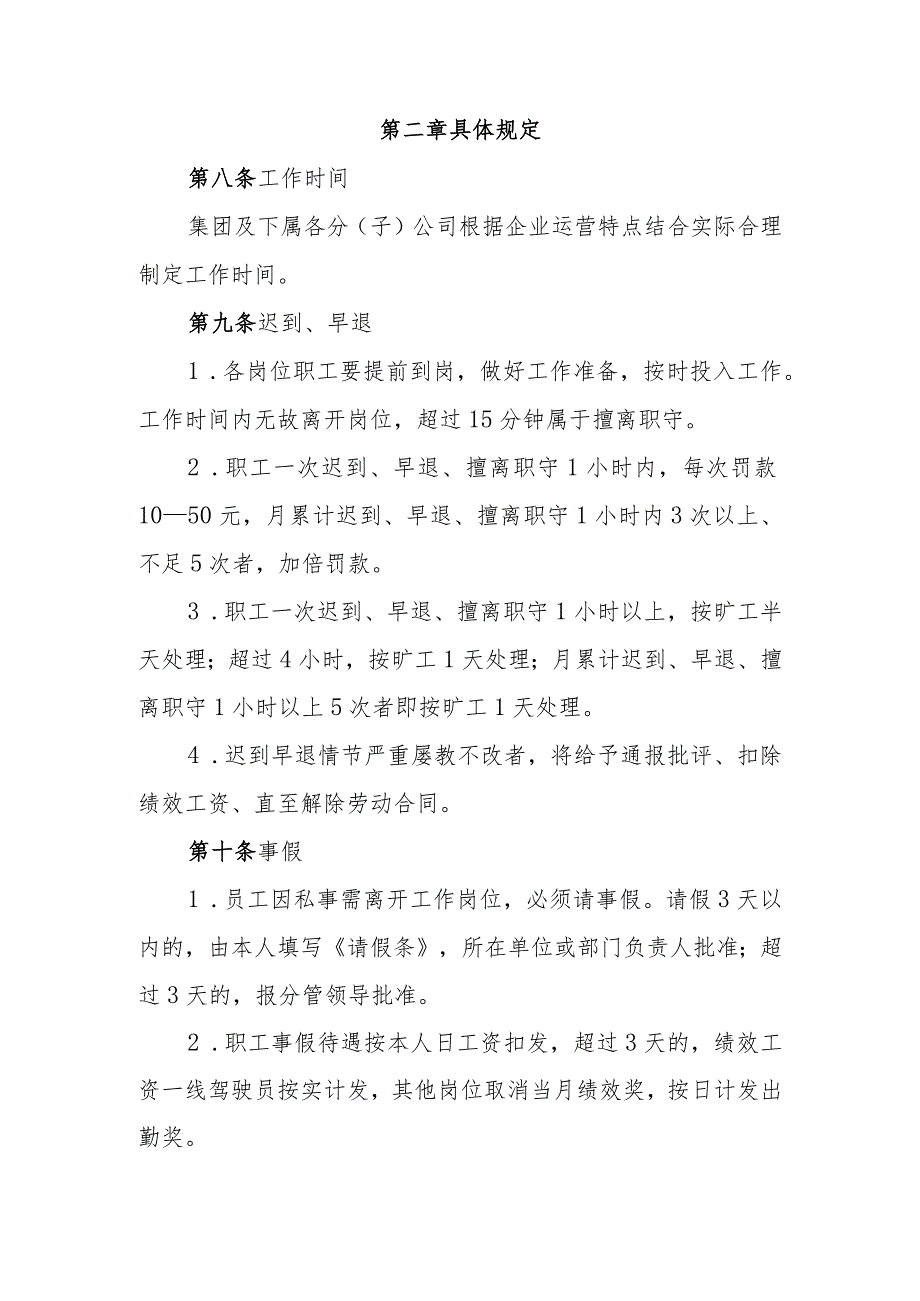 第二章具体规定
第八条工作时间
集团及下属各分（子）公司根据企业运营特点结合实际合理
制定工作时间。
第九条迟到、早退
1．各岗位职工要提前到岗，做好工作准备，按时投入工作。
工作时间内无故离开岗位，超过15分钟属于擅离职守。
2．职工一次迟到、早退、擅离职守1小时内，每次罚款
10—50元，月累计迟到、早退、擅离职守1小时内3次以上、
不足5次者，加倍罚款。
3．职工一次迟到、早退、擅离职守1小时以上，按旷工半
天处理；超过4小时，按旷工1天处理；月累计迟到、早退、擅
离职守1小时以上5次者即按旷工1天处理。
4．迟到早退情节严重屡教不改者，将给予通报批评、扣除
绩效工资、直至解除劳动合同。
第十条事假
1．员工因私事需离开工作岗位，必须请事假。请假3天以
内的，由本人填写《请假条》，所在单位或部门负责人批准；超
过3天的，报分管领导批准。
2．职工事假待遇按本人日工资扣发，超过3天的，绩效工
资一线驾驶员按实计发，其他岗位取消当月绩效奖，按日计发出
勤奖。